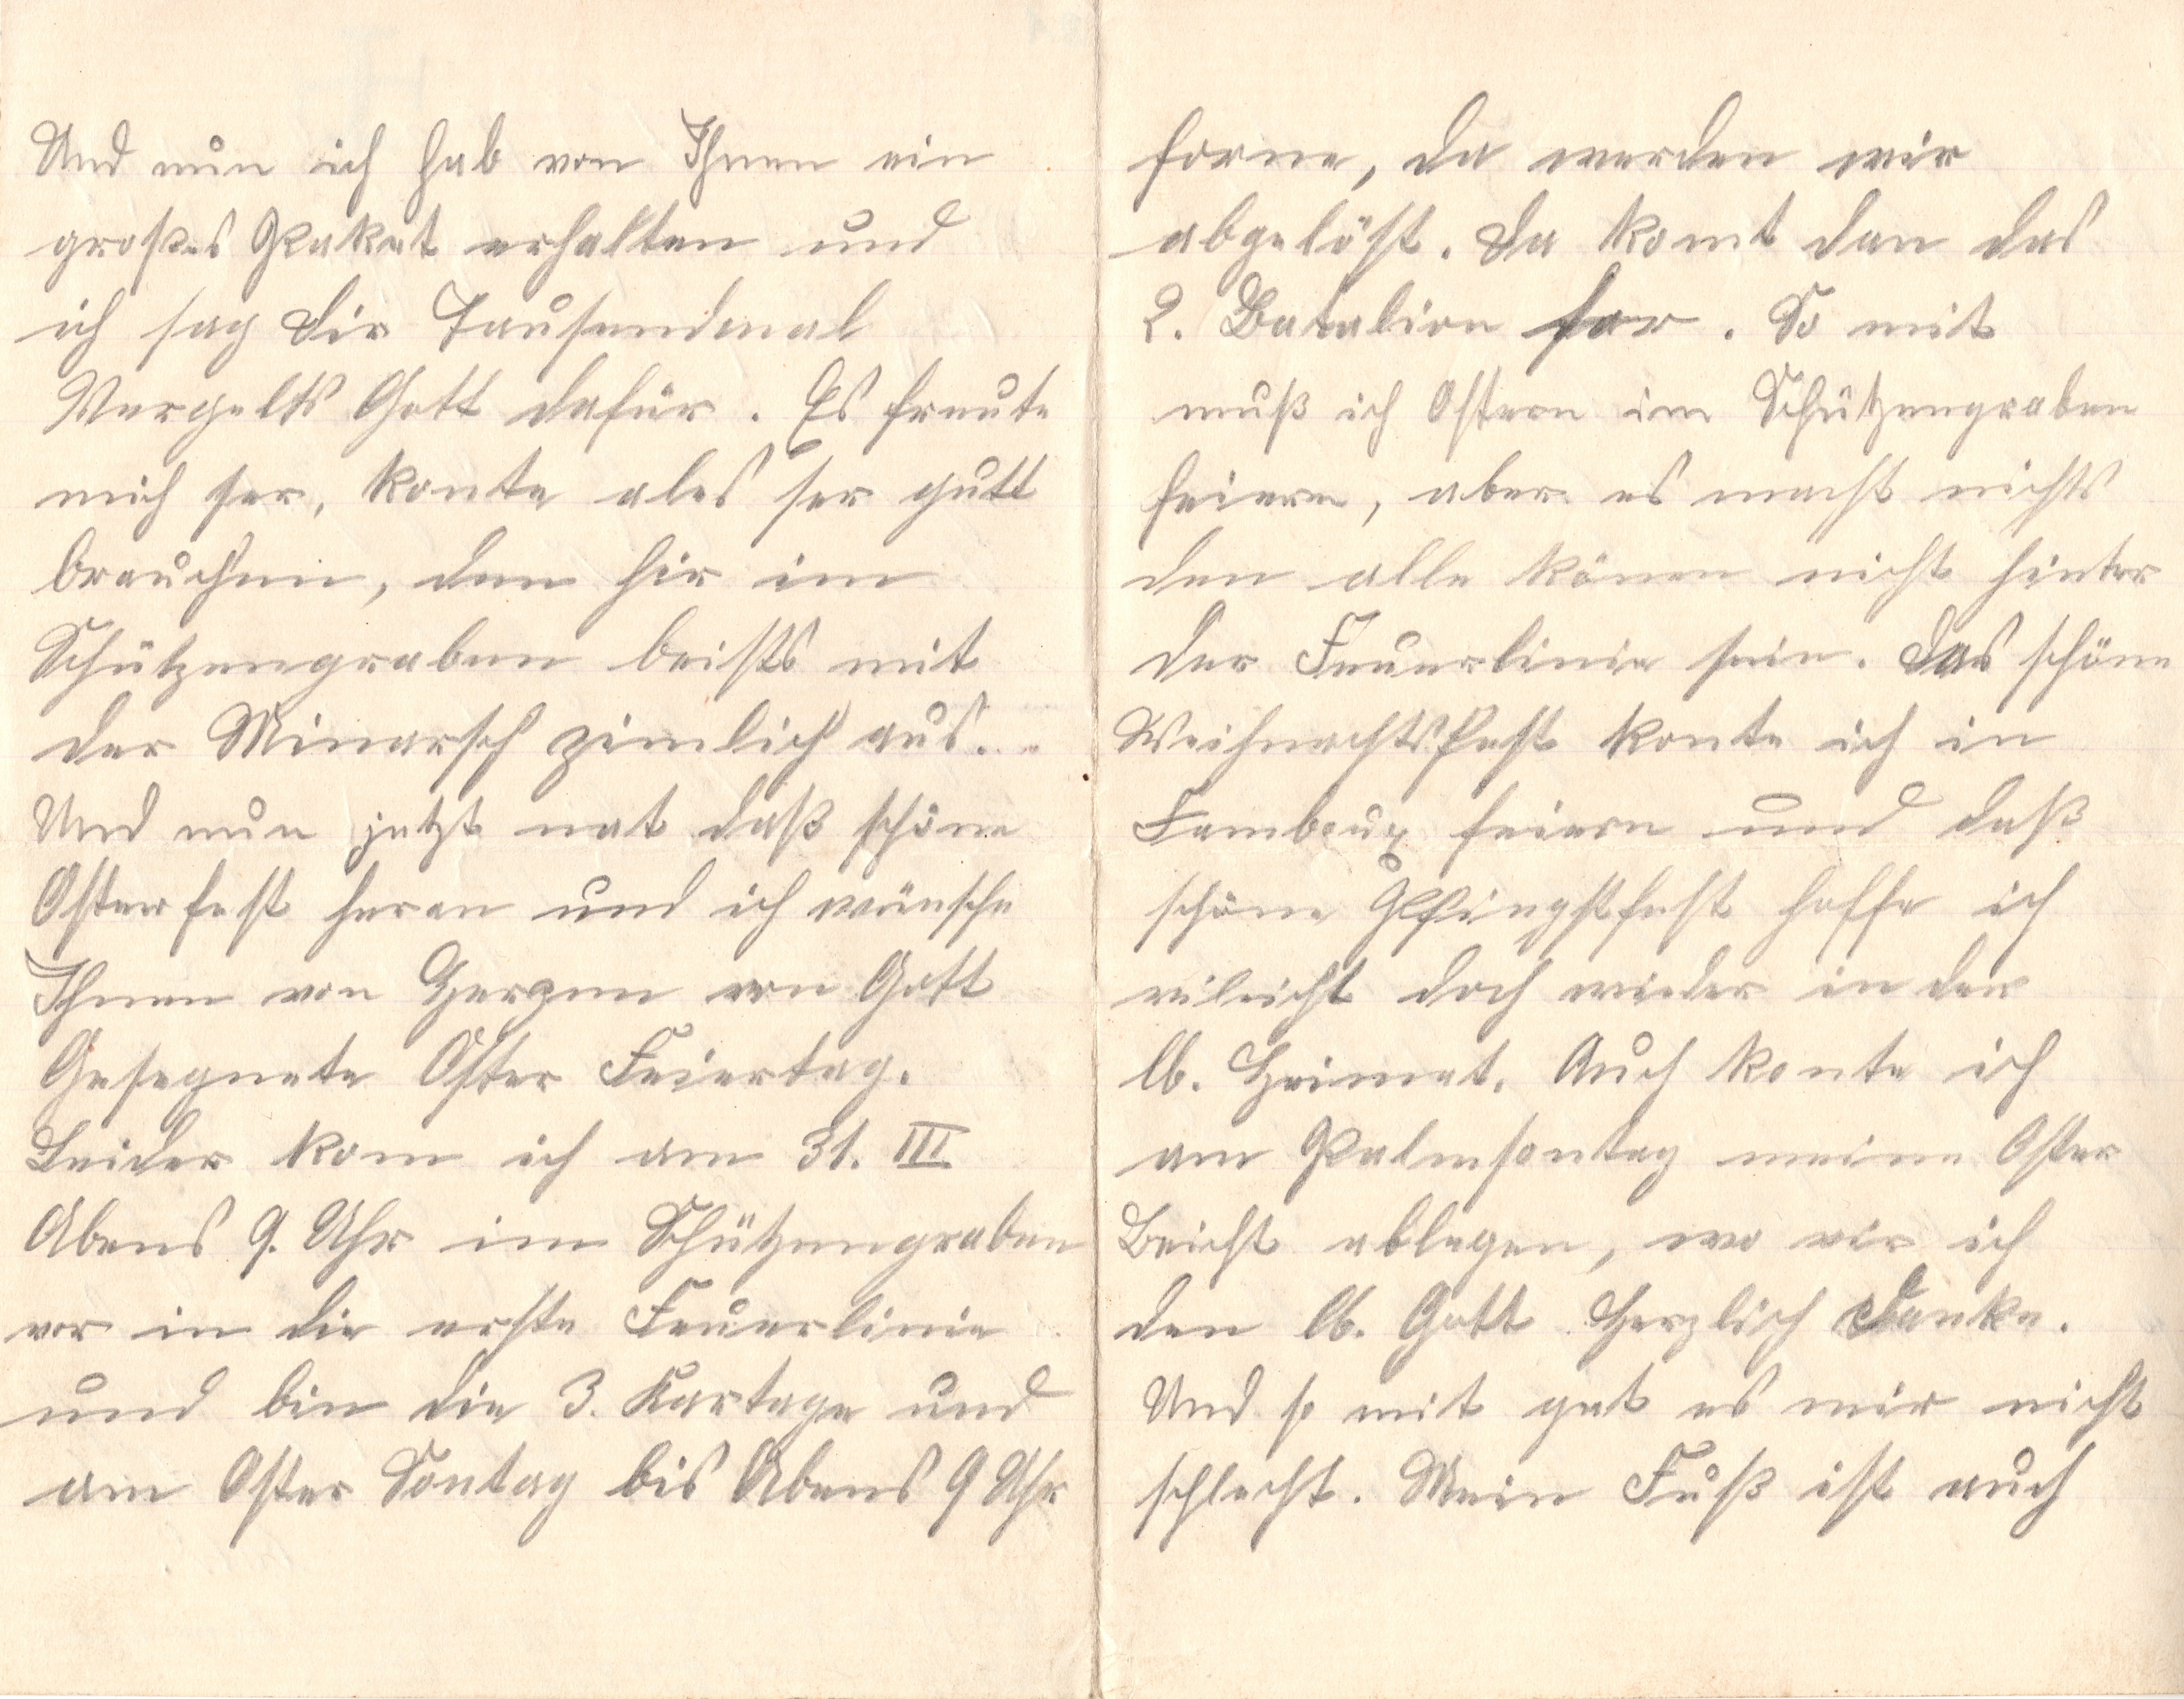 Und nun ich hab von Ihnen ein
großes Packet erhalten und
ich sag Dir Tausendmal
Vergelts Gott dafür. Es freute
mich ser, konte ales ser gutt
brauchen, den hir im
Schützengraben beists mit
der Minarsch zimlich aus.
Und nun jetzt nat daß schöne
Osterfest heran und ich wünsche
Ihnen von Herzen von Gott
Gesegnete Oster Feiertag.
Leider kom ich am 31. III
Abens 9. Uhr im Schützengraben
vor in die erste Feuerlinie
und bin die 3. Kartage und
am Oster Sontag bis Abens 9 Uhr
forne, da werden wir
abgelöst. Da komt dan das
2. Batalion for. So mit
muß ich Ostern im Schützengraben
feiern, aber es macht nichts
den alle könen nicht hinter
der Feuerlinie sein. Das schöne
Weihnachtsfest konte ich in
Famboux feiern und daß
schöne Pfingstfest hoffe ich
vileicht doch wieder in der
lb. Heimat. Auch konte ich
am Palmsontag meine Oster
Beicht ablegen, wo vir ich
den lb. Gott Herzlich Danke.
Und so mit get es mir nicht
schlecht. Mein Fuß ist auch